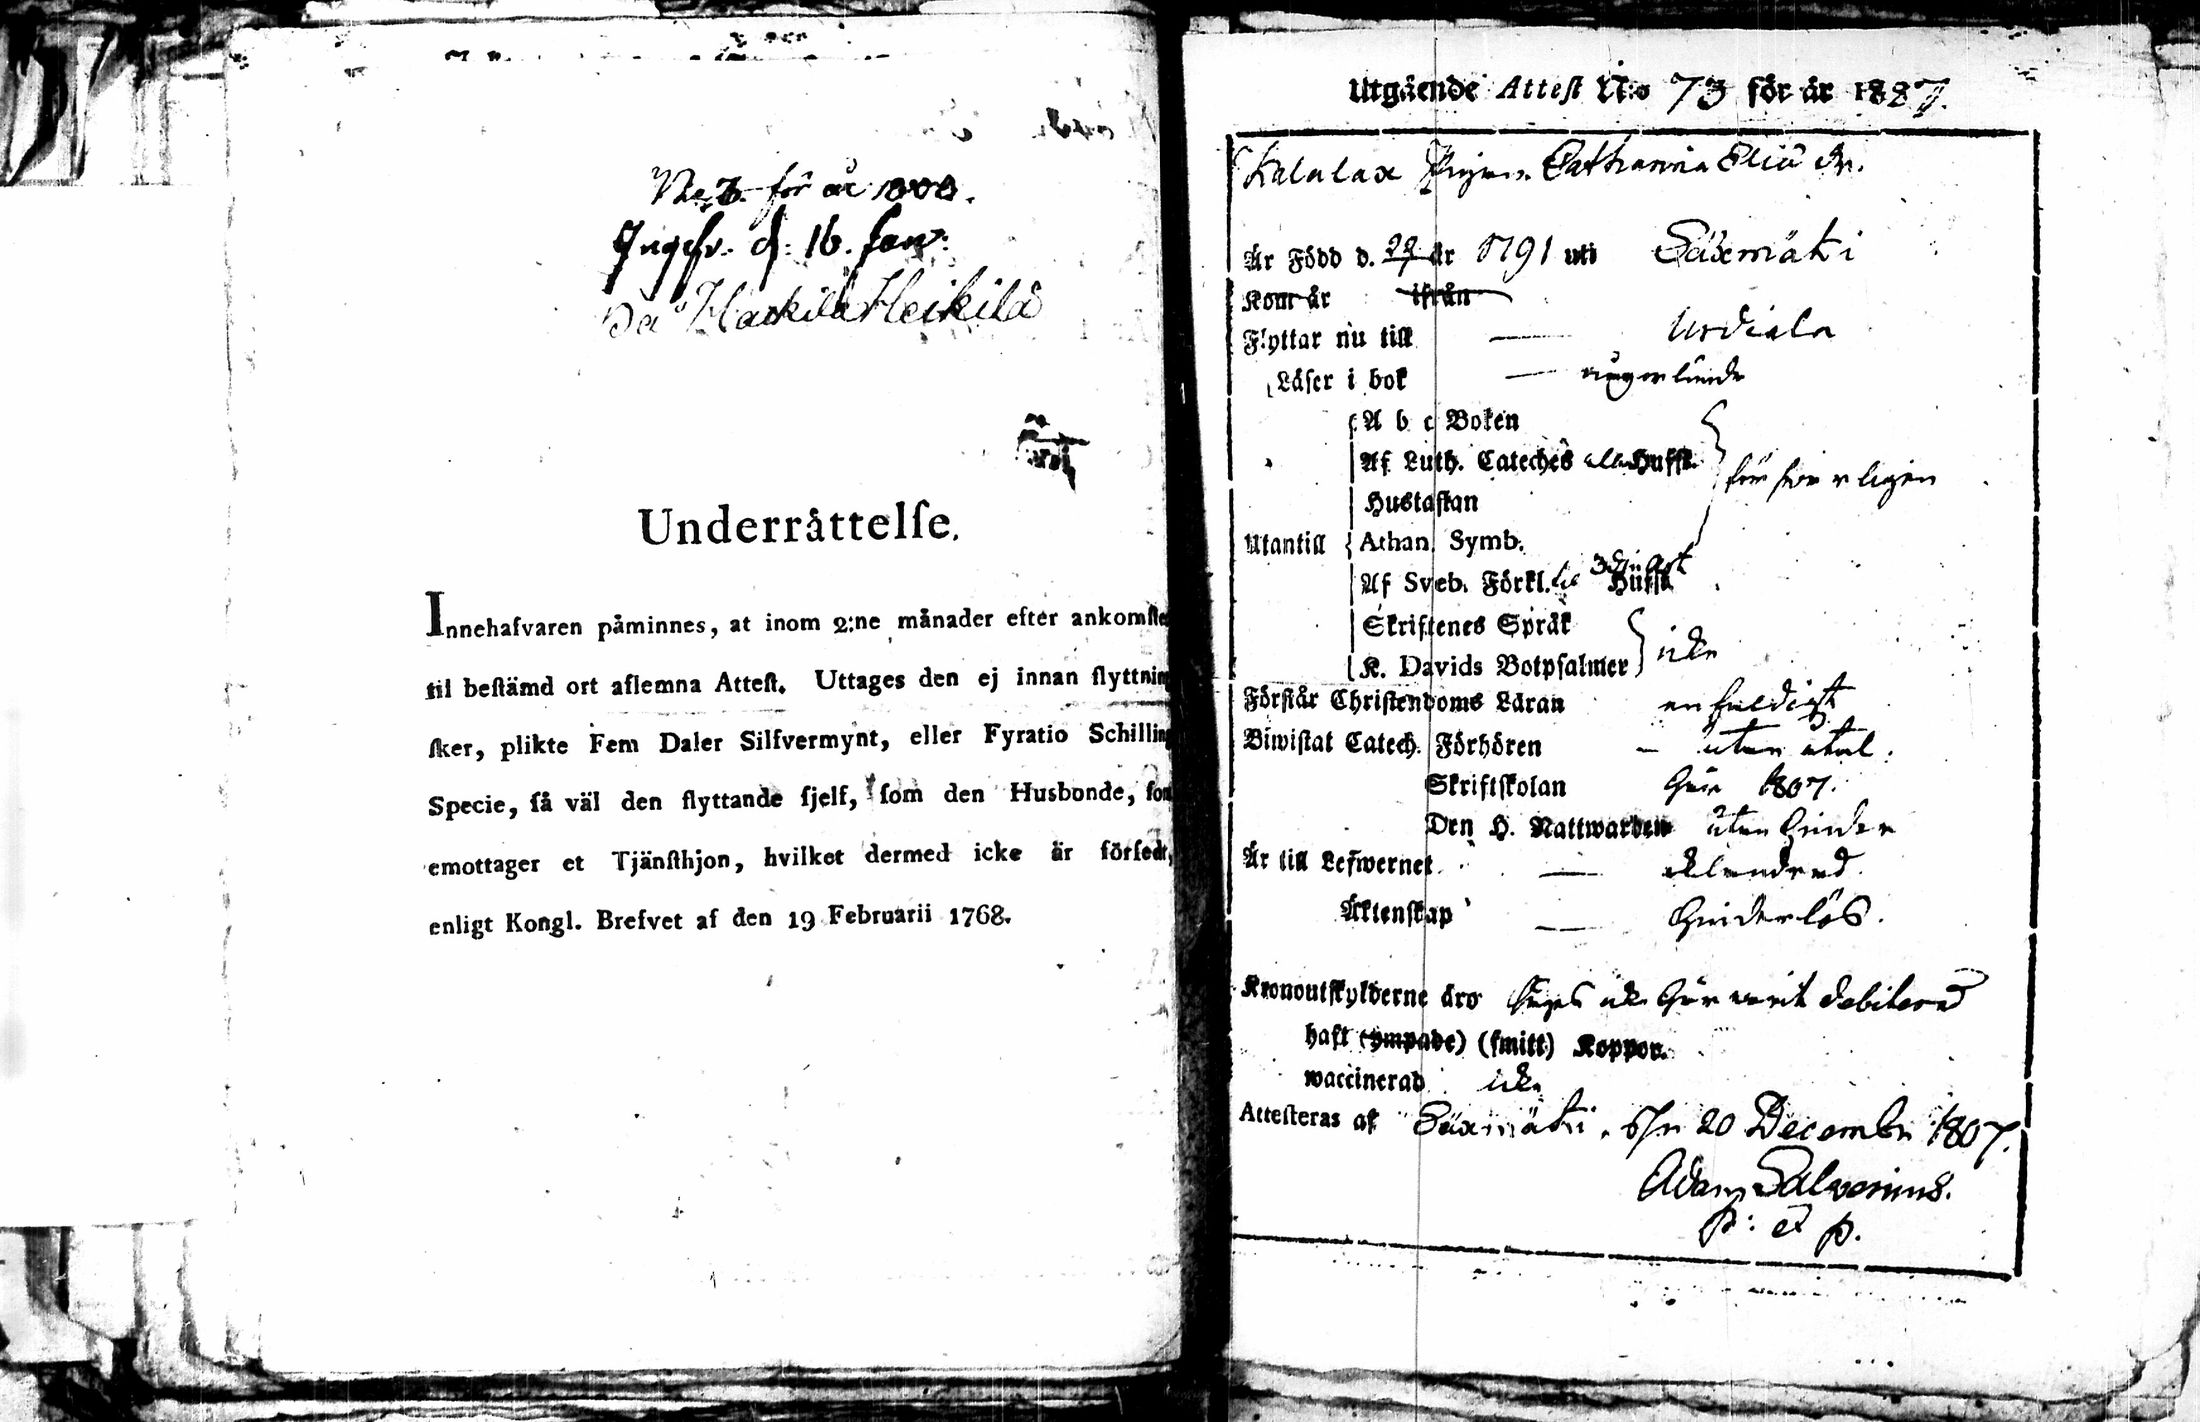 No 3. för år 1808.
d. 16. Jan:
Heikilä
Underrättelſe.
Innehafvaren påminnes, at inom 2:ne månader efter ankomſte
til beſtämd ort aflemna Atteſt. Uttages den ej innan flyttnin
ſker, plikte Fem Daler Silfvermynt, eller Fyratio Schilling
Specie, ſå väl den flyttande ſjelf, ſom den Husbonde, ſom
emottager et Tjänſthjon, hvilket dermed icke är förſedt,
enligt Kongl. Brefvet af den 19 Februarii 1768.
Utgående Atteſt N:o 73 för år 1807.
Kalalax Pigan Catharina Eliæ dr.
Är Född d. 22 år 1791 uti Säxmäki
Kom år ifrån
Flyttar nu till — Urdiala
Läſer i bok —
A b c Boken
Af Luth. Cateches alla Hufſt.
Huſtaflan
Utantill Athan. Symb.
Af Sveb. Förkl. Hufſt
Skriftenes Språk
K. Davids Botpſalmer icke
Förſtår Chriſtendoms Läran enfaldigt
Biwiſtat Catech. Förhören — utan åtal.
Skriftſkolan här 1807.
Den H. Nattwarden utan hinder
Är till Lefwernet — oklandrad
Äktenſkap — hinderlös.
Kronoutſkylderne äro icke här varit debiterad
haft (ympade) (ſmitt) Koppor.
waccinerad icke
Atteſteras af Säxmäki d. 20 December 1807.
Adam Salvenius.
p: et p.